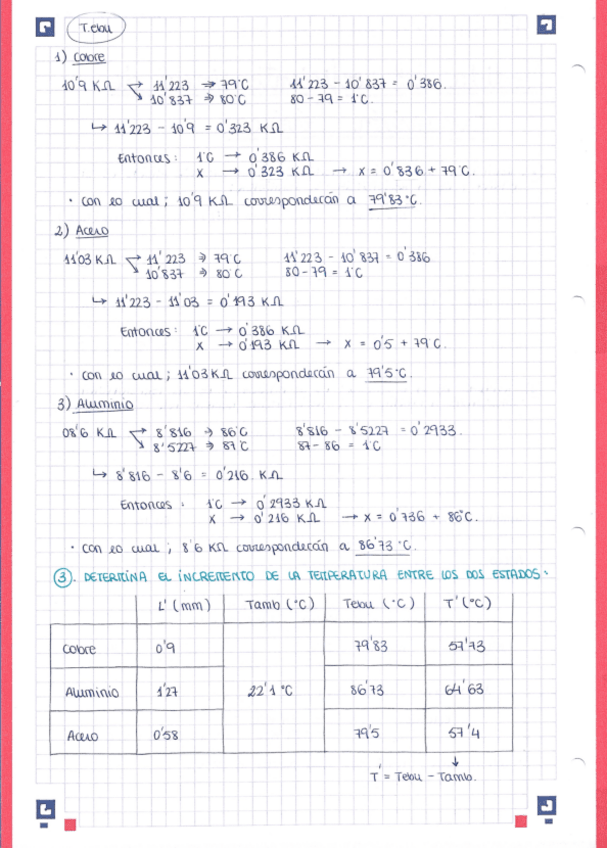 T.ebu
1) Cobre
10'9 KΩ → 11'223 ⇒ 79°C 11'223 - 10'837 = 0'386.
→ 10'837 ⇒ 80°C 80 - 79 = 1°C.
↳ 11'223 - 10'9 = 0'323 KΩ
Entonces: 1°C → 0'386 KΩ
x → 0'323 KΩ → x = 0'836 + 79°C.
· Con lo cual; 10'9 KΩ corresponderán a 79'83°C.
2) Acero
11'03 KΩ → 11'223 ⇒ 79°C 11'223 - 10'837 = 0'386
→ 10'837 ⇒ 80 C 80 - 79 = 1°C
↳ 11'223 - 11'03 = 0'193 KΩ
Entonces: 1°C → 0'386 KΩ
x → 0'193 KΩ → x = 0'5 + 79 C.
· Con lo cual; 11'03 KΩ corresponderán a 79'5°C.
3) Aluminio
08'6 KΩ → 8'816 ⇒ 86°C 8'816 - 8'5227 = 0'2933.
→ 8'5227 ⇒ 87°C 87 - 86 = 1°C
↳ 8'816 - 8'6 = 0'216 KΩ
Entonces: 1°C → 0'2933 KΩ
x → 0'216 KΩ → x = 0'736 + 86°C.
· Con lo cual; 8'6 KΩ corresponderán a 86'73°C.
③. DETERMINA EL INCREMENTO DE LA TEMPERATURA ENTRE LOS DOS ESTADOS.
L' (mm) Tamb (°C) Tebu (°C) T' (°C)
Cobre 0'9 79'83 57'73
Aluminio 1'27 22'1 °C 86'73 64'63
Acero 0'58 79'5 57'4
↓
T' = Tebu - Tamb.